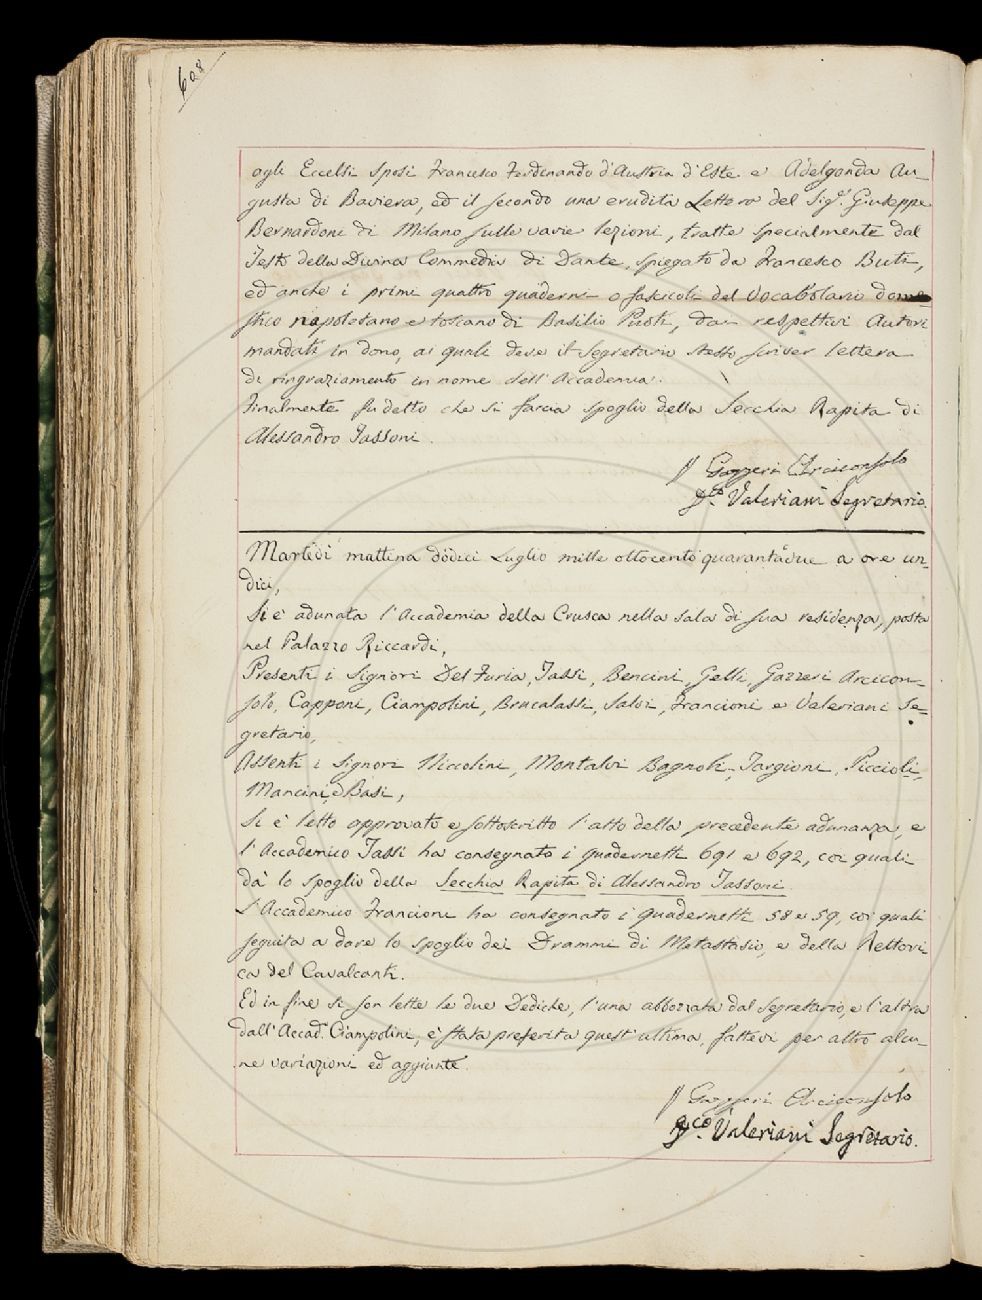 608
agli Eccelsi Sposi Francesco Ferdinando d'Austria d'Este e Adelgonda Au-
gusta di Baviera, ed il secondo una erudita Lettera del Sig.r Giuseppe
Bernardoni di Milano sulle varie lezioni, tratte specialmente dal
Testo della Divina Commedia di Dante, spiegato da Francesco Buti,
ed anche i primi quattro quaderni o fascicoli del Vocabolario dome-
stico napoletano e toscano di Basilio Puoti, da' respettivi Autori
mandati in dono, ai quali deve il Segretario stesso scriver lettera
di ringraziamento in nome dell'Accademia.
Finalmente fu detto che si faccia spoglio della Secchia Rapita di
Alessandro Tassoni.
Gazzeri Arciconsolo
Valeriani Segretario.
Martedì mattina dodici Luglio mille ottocento quarantadue a ore un-
dici,
Si è adunata l'Accademia della Crusca nella sala di sua residenza, posta
nel Palazzo Riccardi,
Presenti i Signori Del Furia, Tassi, Bencini, Gelli, Gazzeri Arcicon-
solo, Capponi, Ciampolini, Brucalassi, Salvi, Francioni e Valeriani Se-
gretario,
Assenti i Signori Niccolini, Montalvi Bagnoli, Targioni, Piccioli,
Mancini, e Basi,
Si è letto approvato e sottoscritto l'atto della precedente adunanza, e
l'Accademico Tassi ha consegnato i quadernetti 691 e 692, coi quali
dà lo spoglio della Secchia Rapita di Alessandro Tassoni.
L'Accademico Francioni ha consegnato i quadernetti 58 e 59, coi quali
seguita a dare lo spoglio dei Drammi di Metastasio, e della Rettori-
ca del Cavalcanti.
Ed in fine si son lette le due Dediche, l'una abbozzata dal Segretario, e l'altra
dall'Accad.o Ciampolini, e è stata preferita quest'ultima, fattevi per altro alcu-
ne variazioni ed aggiunte.
Gazzeri Arciconsolo
Valeriani Segretario.